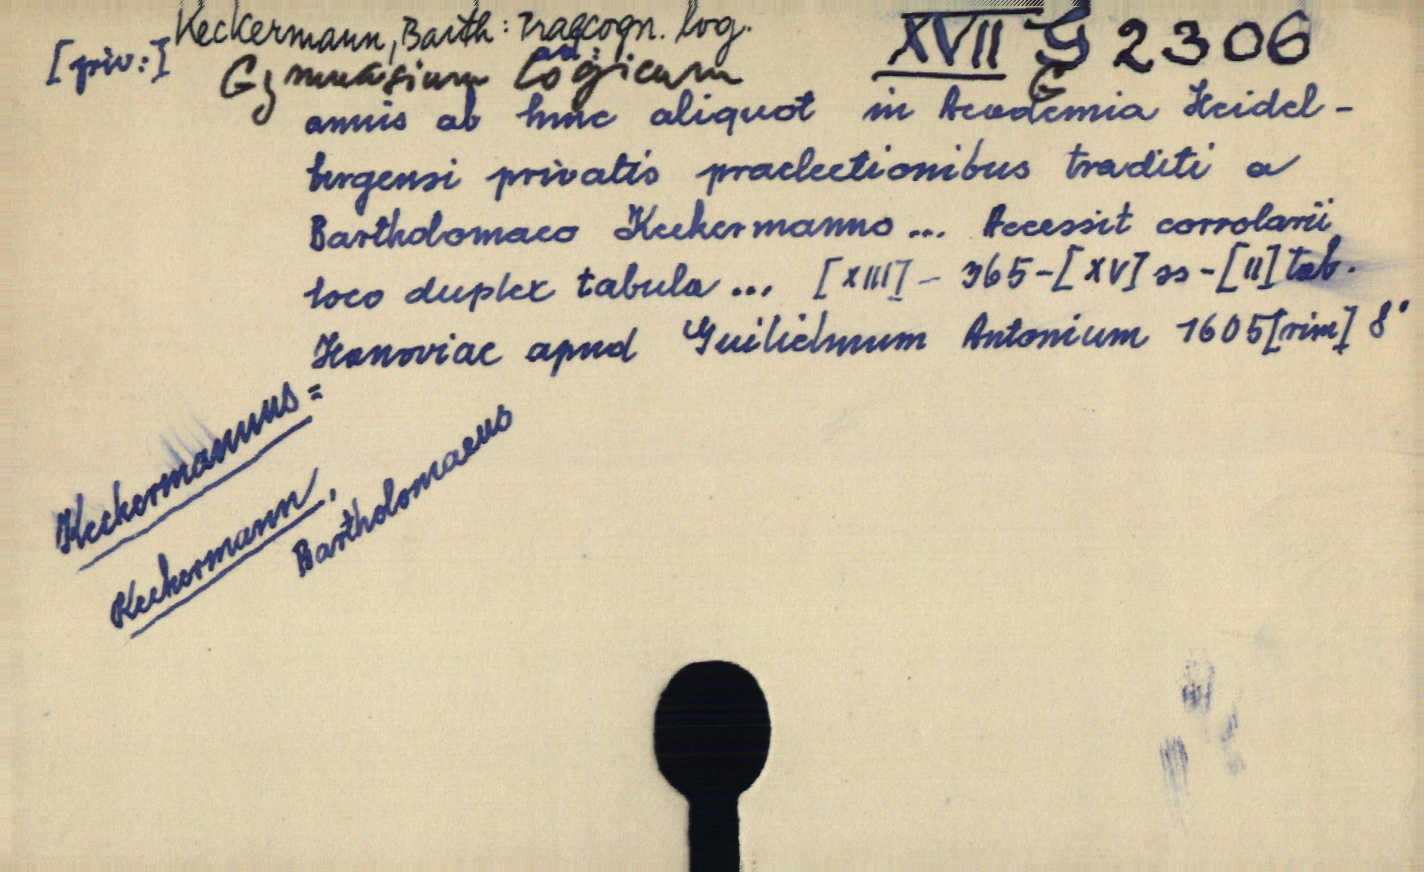 Keckermann, Barth: Praecogn. log.
[priv:] XVII G 2306
ad:
Gymnasium Logicum G
annis ab hinc aliquot in Academia Heidel-
bergensi privatis praelectionibus traditi a
Bartholomaeo Keckermanno ... Accessit corrolarii
loco duplex tabula ... [XIII] - 365 - [XV] ss - [II] tab.
Hanoviae apud Guilielmum Antonium 1605 [rim] 8°
Keckermannus =
Keckermann,
Bartholomaeus